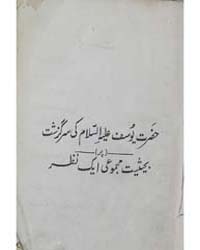 حضرت یوسف علیہ السلام کی سرگزشت
(پر)
بحیثیت مجموعی ایک نظر